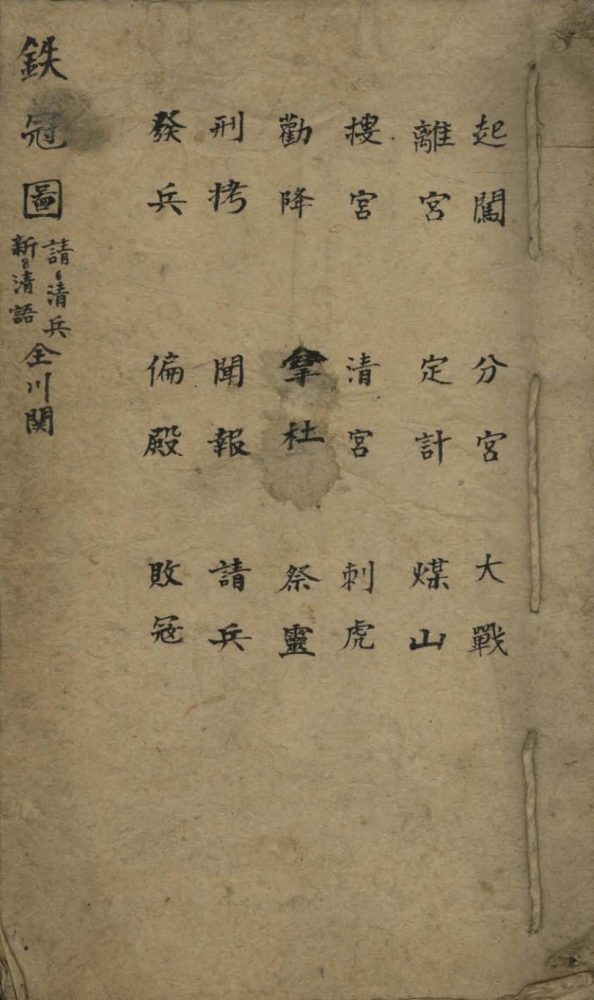 起闖 分宮 大戰
離宮 定計 煤山
搜宮 清宮 刺虎
勸降 拿杜 祭靈
刑拷 聞報 請兵
發兵 偏殿 敗冦
鉄冠圖
請清兵
新清語
全川関